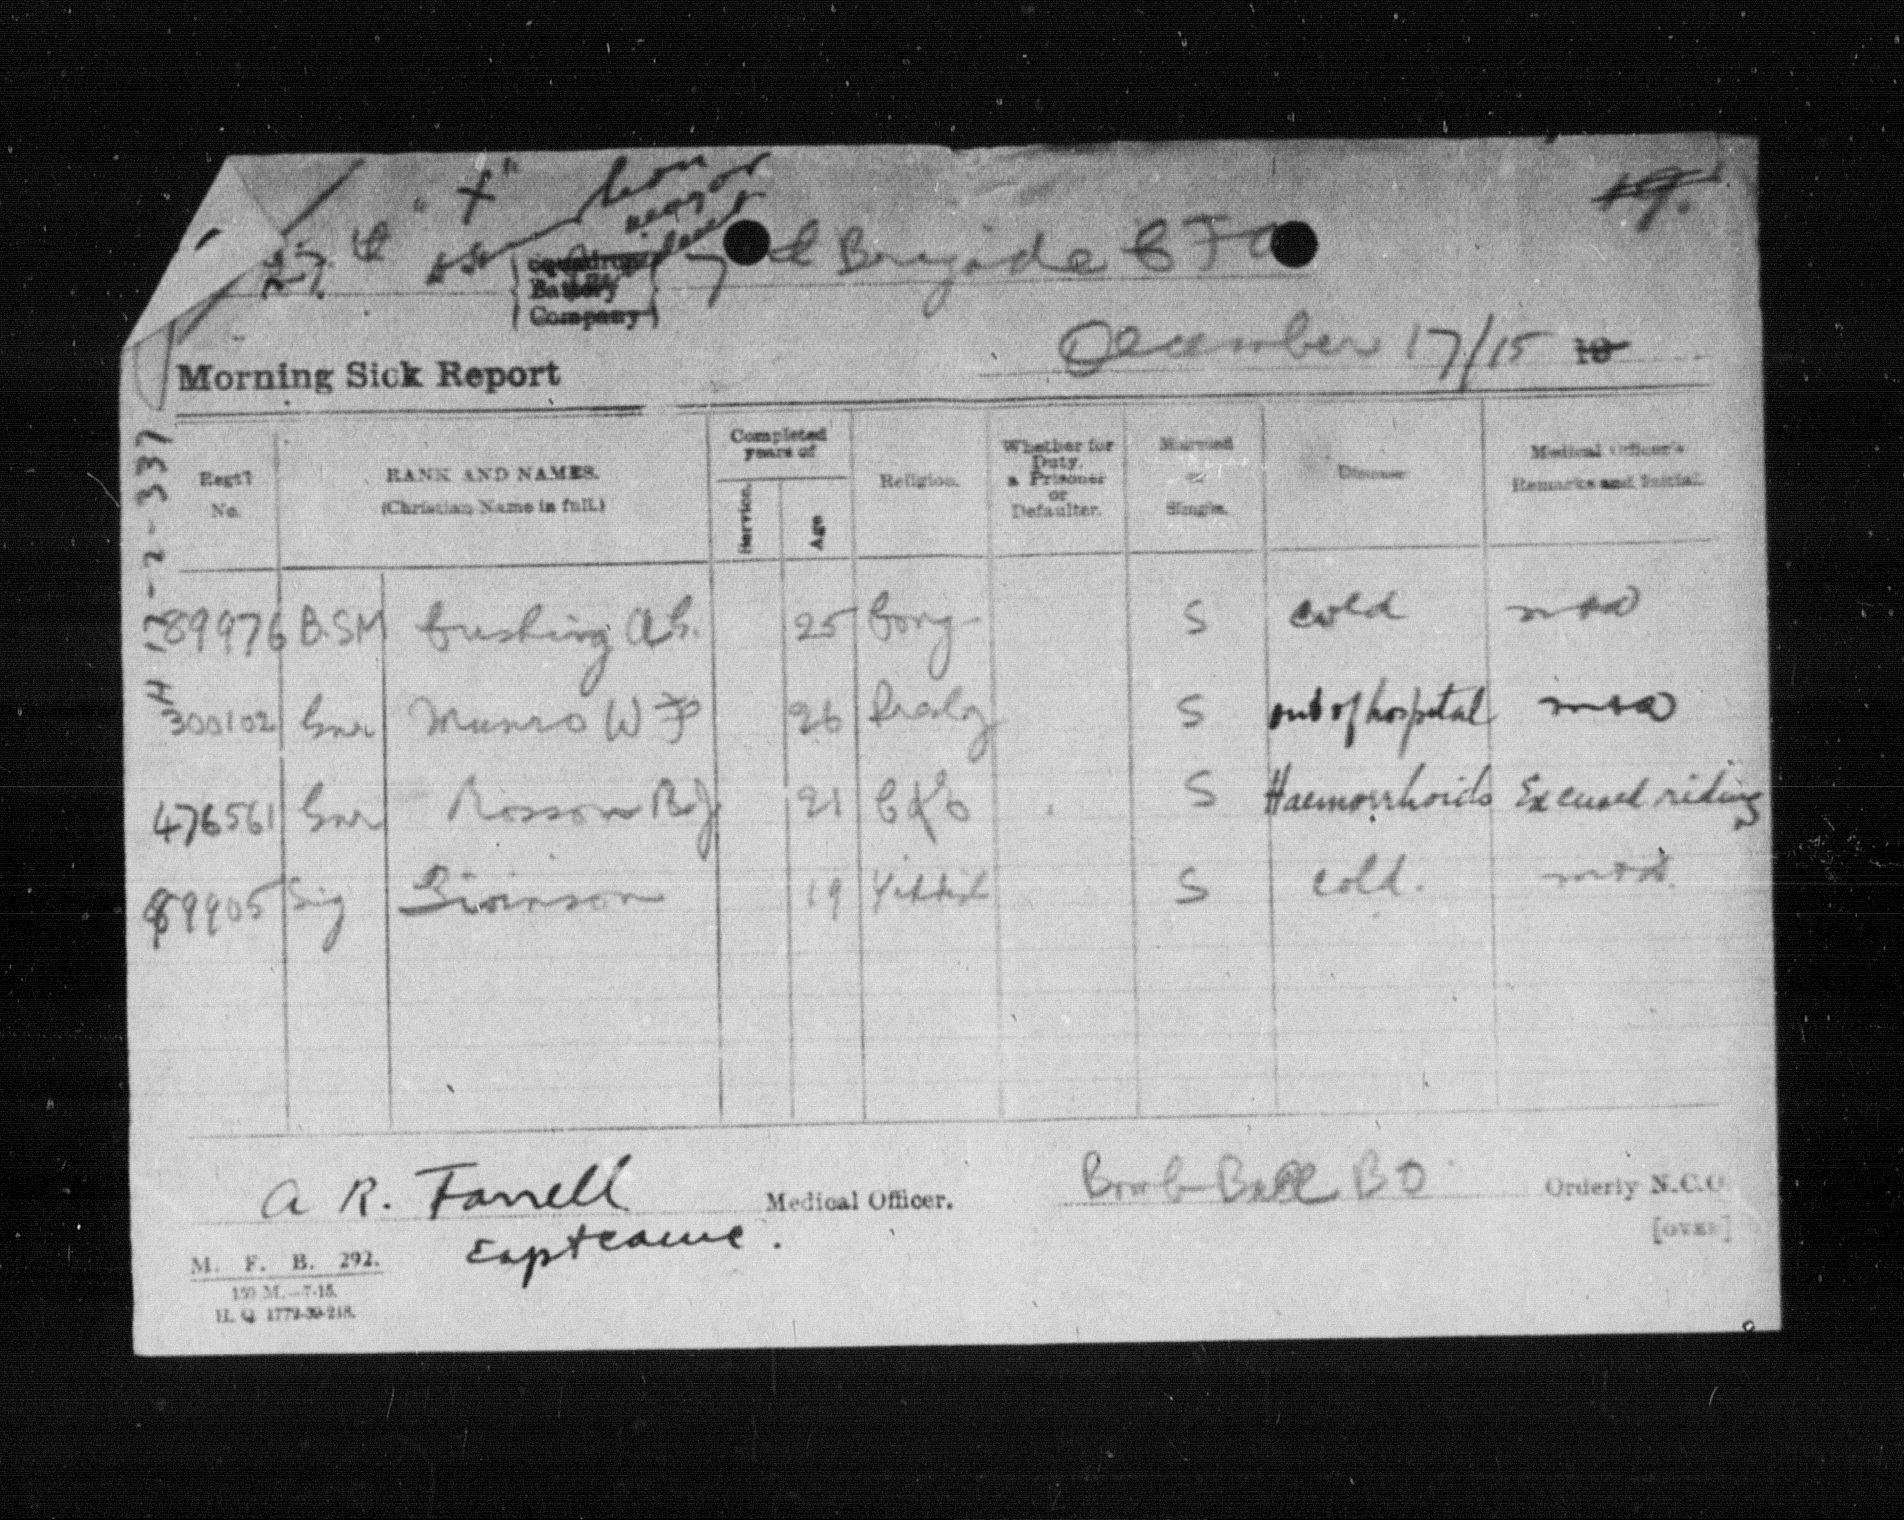 "X"
19.
27th
Squadron
Battery
Company
7 Brigade C F A
December 17/15 19
Morning Sick Report
H 17-2-337
Regt'l No.
RANK AND NAMES.
(Christian Name in full.)
Completed years of
Service.
Age
Religion.
Whether for Duty, a Prisoner or Defaulter.
Married or Single.
Disease
Medical Officer's Remarks and Initial.
89976 B.S.M Cushing A G. 25 Cong S cold m+d
300102 Gnr Munro W F 26 Presby S out of hospital m+d
476561 Gnr Rosson R J 21 C of E S Haemorrhoids Excused riding
89905 Sig 19 Yiddish S cold. m+d.
A R. Farrell Medical Officer.
Captaine.
Bomb Ball B O Orderly N.C.O.
[OVER]
M. F. B. 292.
150 M.—7-15.
H. Q. 1772-39-218.